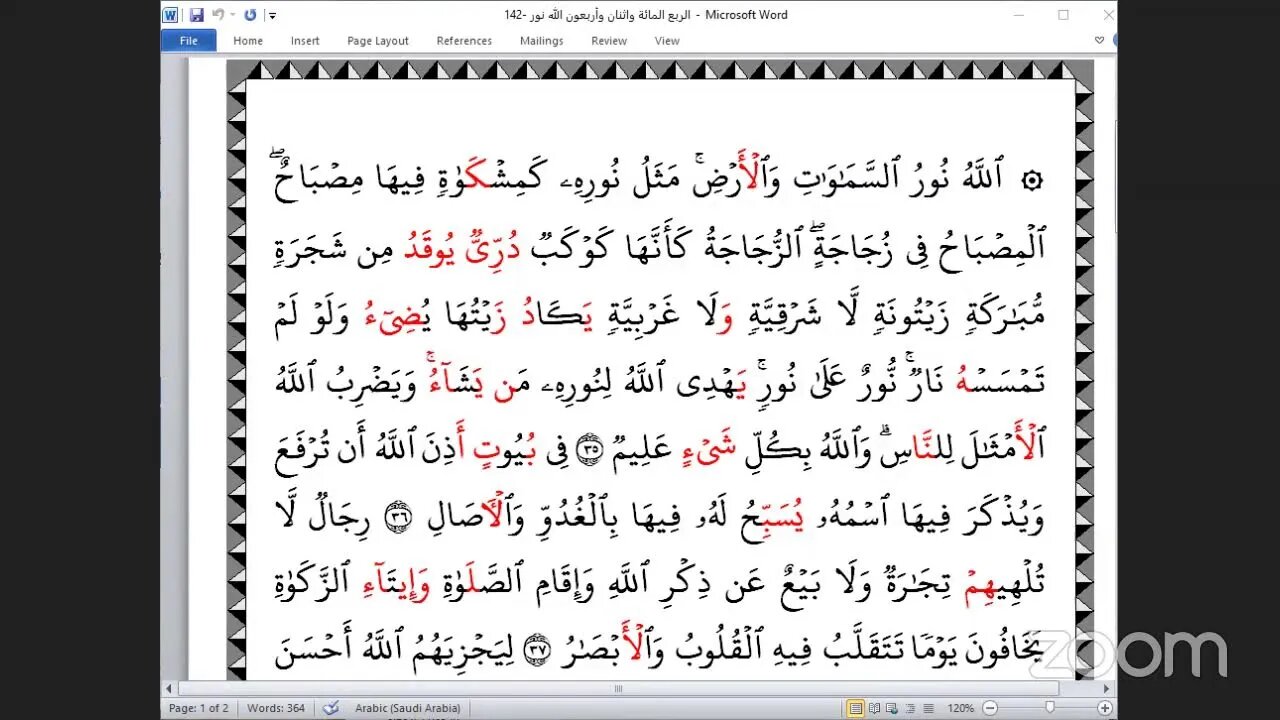 142- الربع المائة واثنان وأربعون الله نور - Microsoft Word
File Home Insert Page Layout References Mailings Review View
۞ ٱللَّهُ نُورُ ٱلسَّمَٰوَٰتِ وَٱلۡأَرۡضِۚ مَثَلُ نُورِهِۦ كَمِشۡكَوٰةٖ فِيهَا مِصۡبَاحٌۖ
ٱلۡمِصۡبَاحُ فِي زُجَاجَةٍۖ ٱلزُّجَاجَةُ كَأَنَّهَا كَوۡكَبٞ دُرِّيّٞ يُوقَدُ مِن شَجَرَةٖ
مُّبَٰرَكَةٖ زَيۡتُونَةٖ لَّا شَرۡقِيَّةٖ وَلَا غَرۡبِيَّةٖ يَكَادُ زَيۡتُهَا يُضِيٓءُ وَلَوۡ لَمۡ
تَمۡسَسۡهُ نَارٞۚ نُّورٌ عَلَىٰ نُورٖۚ يَهۡدِي ٱللَّهُ لِنُورِهِۦ مَن يَشَآءُۚ وَيَضۡرِبُ ٱللَّهُ
ٱلۡأَمۡثَٰلَ لِلنَّاسِۗ وَٱللَّهُ بِكُلِّ شَيۡءٍ عَلِيمٞ ٣٥ فِي بُيُوتٍ أَذِنَ ٱللَّهُ أَن تُرۡفَعَ
وَيُذۡكَرَ فِيهَا ٱسۡمُهُۥ يُسَبِّحُ لَهُۥ فِيهَا بِٱلۡغُدُوِّ وَٱلۡأٓصَالِ ٣٦ رِجَالٞ لَّا
تُلۡهِيهِمۡ تِجَٰرَةٞ وَلَا بَيۡعٌ عَن ذِكۡرِ ٱللَّهِ وَإِقَامِ ٱلصَّلَوٰةِ وَإِيتَآءِ ٱلزَّكَوٰةِ
يَخَافُونَ يَوۡمٗا تَتَقَلَّبُ فِيهِ ٱلۡقُلُوبُ وَٱلۡأَبۡصَٰرُ ٣٧ لِيَجۡزِيَهُمُ ٱللَّهُ أَحۡسَنَ
zoom
Page: 1 of 2 Words: 364 Arabic (Saudi Arabia) 120%